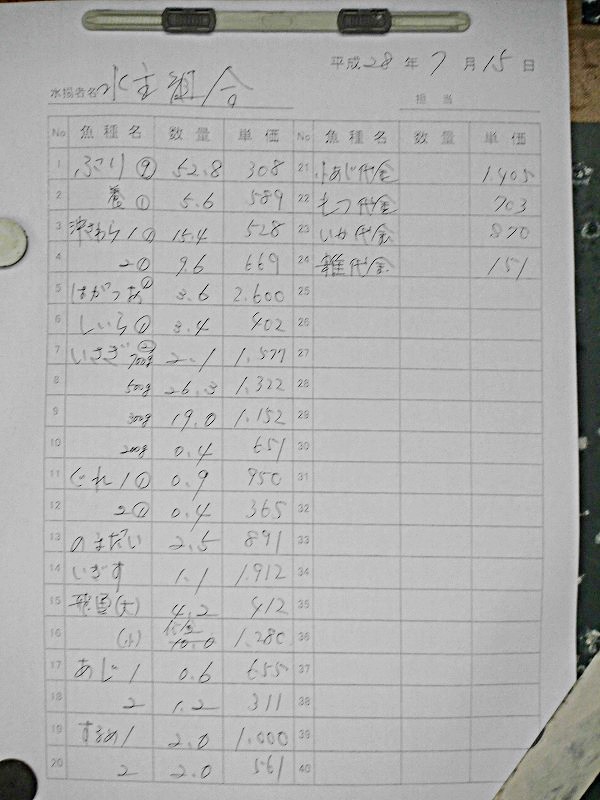 平成28年 7月15日
水揚者名 水主組合
担当
No 魚種名 数量 単価 No 魚種名 数量 単価
1 ぶり ⑨ 52.8 308 21 小あじ代金 1.405
2 巻 ① 5.6 589 22 もつ代金 703
3 沖さわら1 ① 15.4 528 23 いか代金 870
4 2 ① 9.6 669 24 雑代金 151
5 はがつお ① 3.6 2.600 25
6 しいら ① 3.4 402 26
7 いさぎ 700g 2.1 1.577 27
8 500g 26.3 1.322 28
9 300g 19.0 1.152 29
10 200g 0.4 651 30
11 ぐれ1 ① 0.9 950 31
12 2 ① 0.4 365 32
13 のまだい 2.5 891 33
14 いぎす 1.1 1.912 34
15 飛魚(大) 4.2 412 35
16 (小) 10.0 1.280 36
17 あじ1 0.6 655 37
18 2 1.2 311 38
19 するめ1 2.0 1.000 39
20 2 2.0 561 40